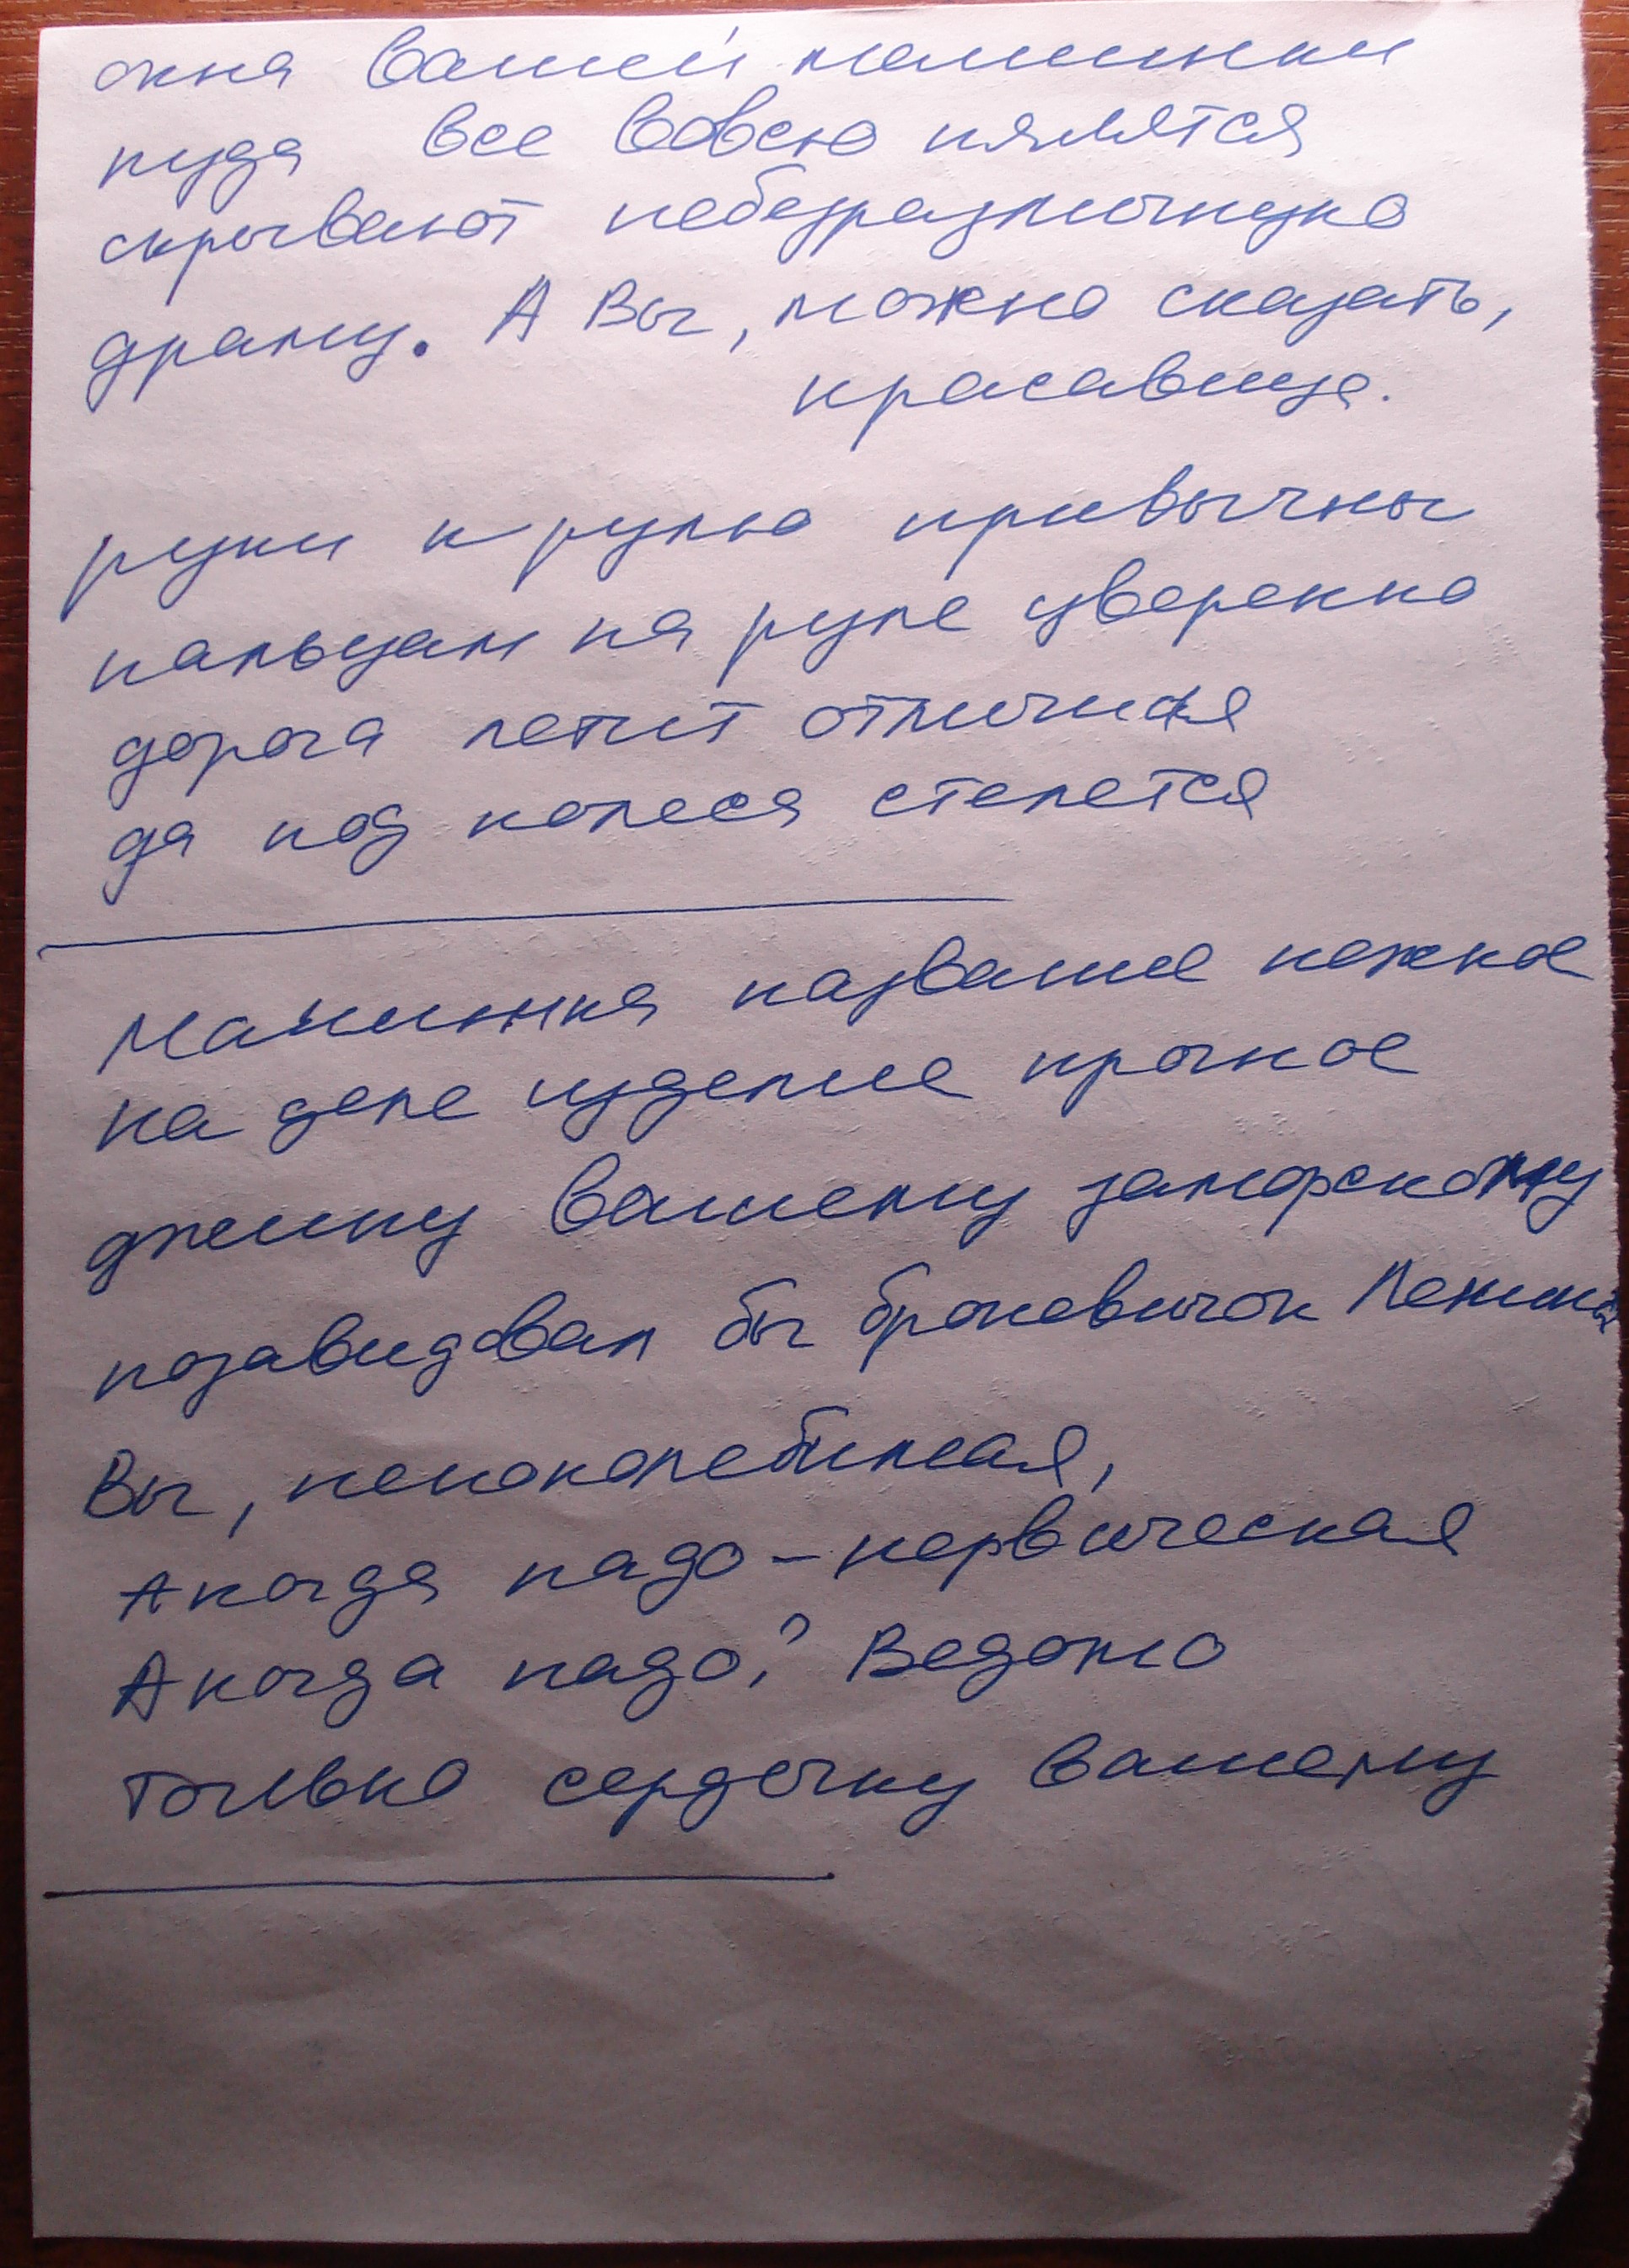 окна Вашей машинки
куда все вовсю пялятся
скрывают небезразличную
драму. А Вы, можно сказать,
красавица.
руки к рулю привычны
пальцам на руле уверенно
дорога летит отличная
да под колеса стелется
Машинка название нежное
на деле изделие прочное
джипу Вашему заморскому
позавидовал бы броневичок Ленина
Вы, непоколебимая,
А когда надо - нервическая
А когда надо? Ведомо
только сердечку вашему